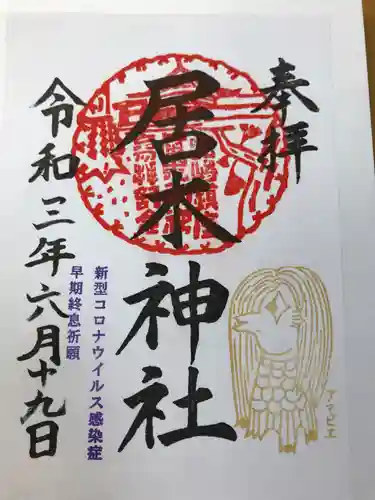 奉拝
居木神社
令和三年六月十九日
新型コロナウイルス感染症
早期終息祈願
アマビエ